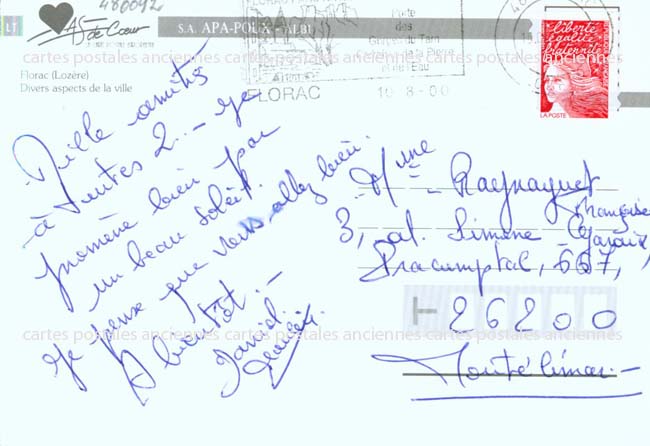 480092
LJ
As de Cœur
S.A. APA-POUX - ALBI
Florac (Lozère)
Divers aspects de la ville
Porte
des
Gorges du Tarn
de la Pierre
et de l'Eau
FLORAC
16-8-00
liberté
égalité
fraternité
LA POSTE
cartes postales anciennes cartes postales anciennes cartes postales anciennes
Mille amitiés
à toutes 2... - je
promène bien par
un beau soleil.
Je pense que vous allez bien.
A bientôt. -
Mme Raynaguet
Françoise
3, al. Simone
667,
26200
Montélimar. -
cartes postales anciennes cartes postales anciennes cartes postales anciennes